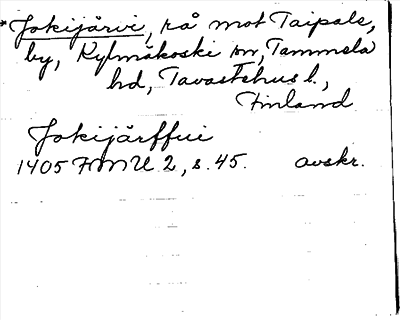 *Jokijärvi, rå mot Taipale,
by, Kylmäkoski sn, Tammela
hd, Tavastehus l.,
Finland
Jokijärffui
1405 FMU 2, s. 45. avskr.